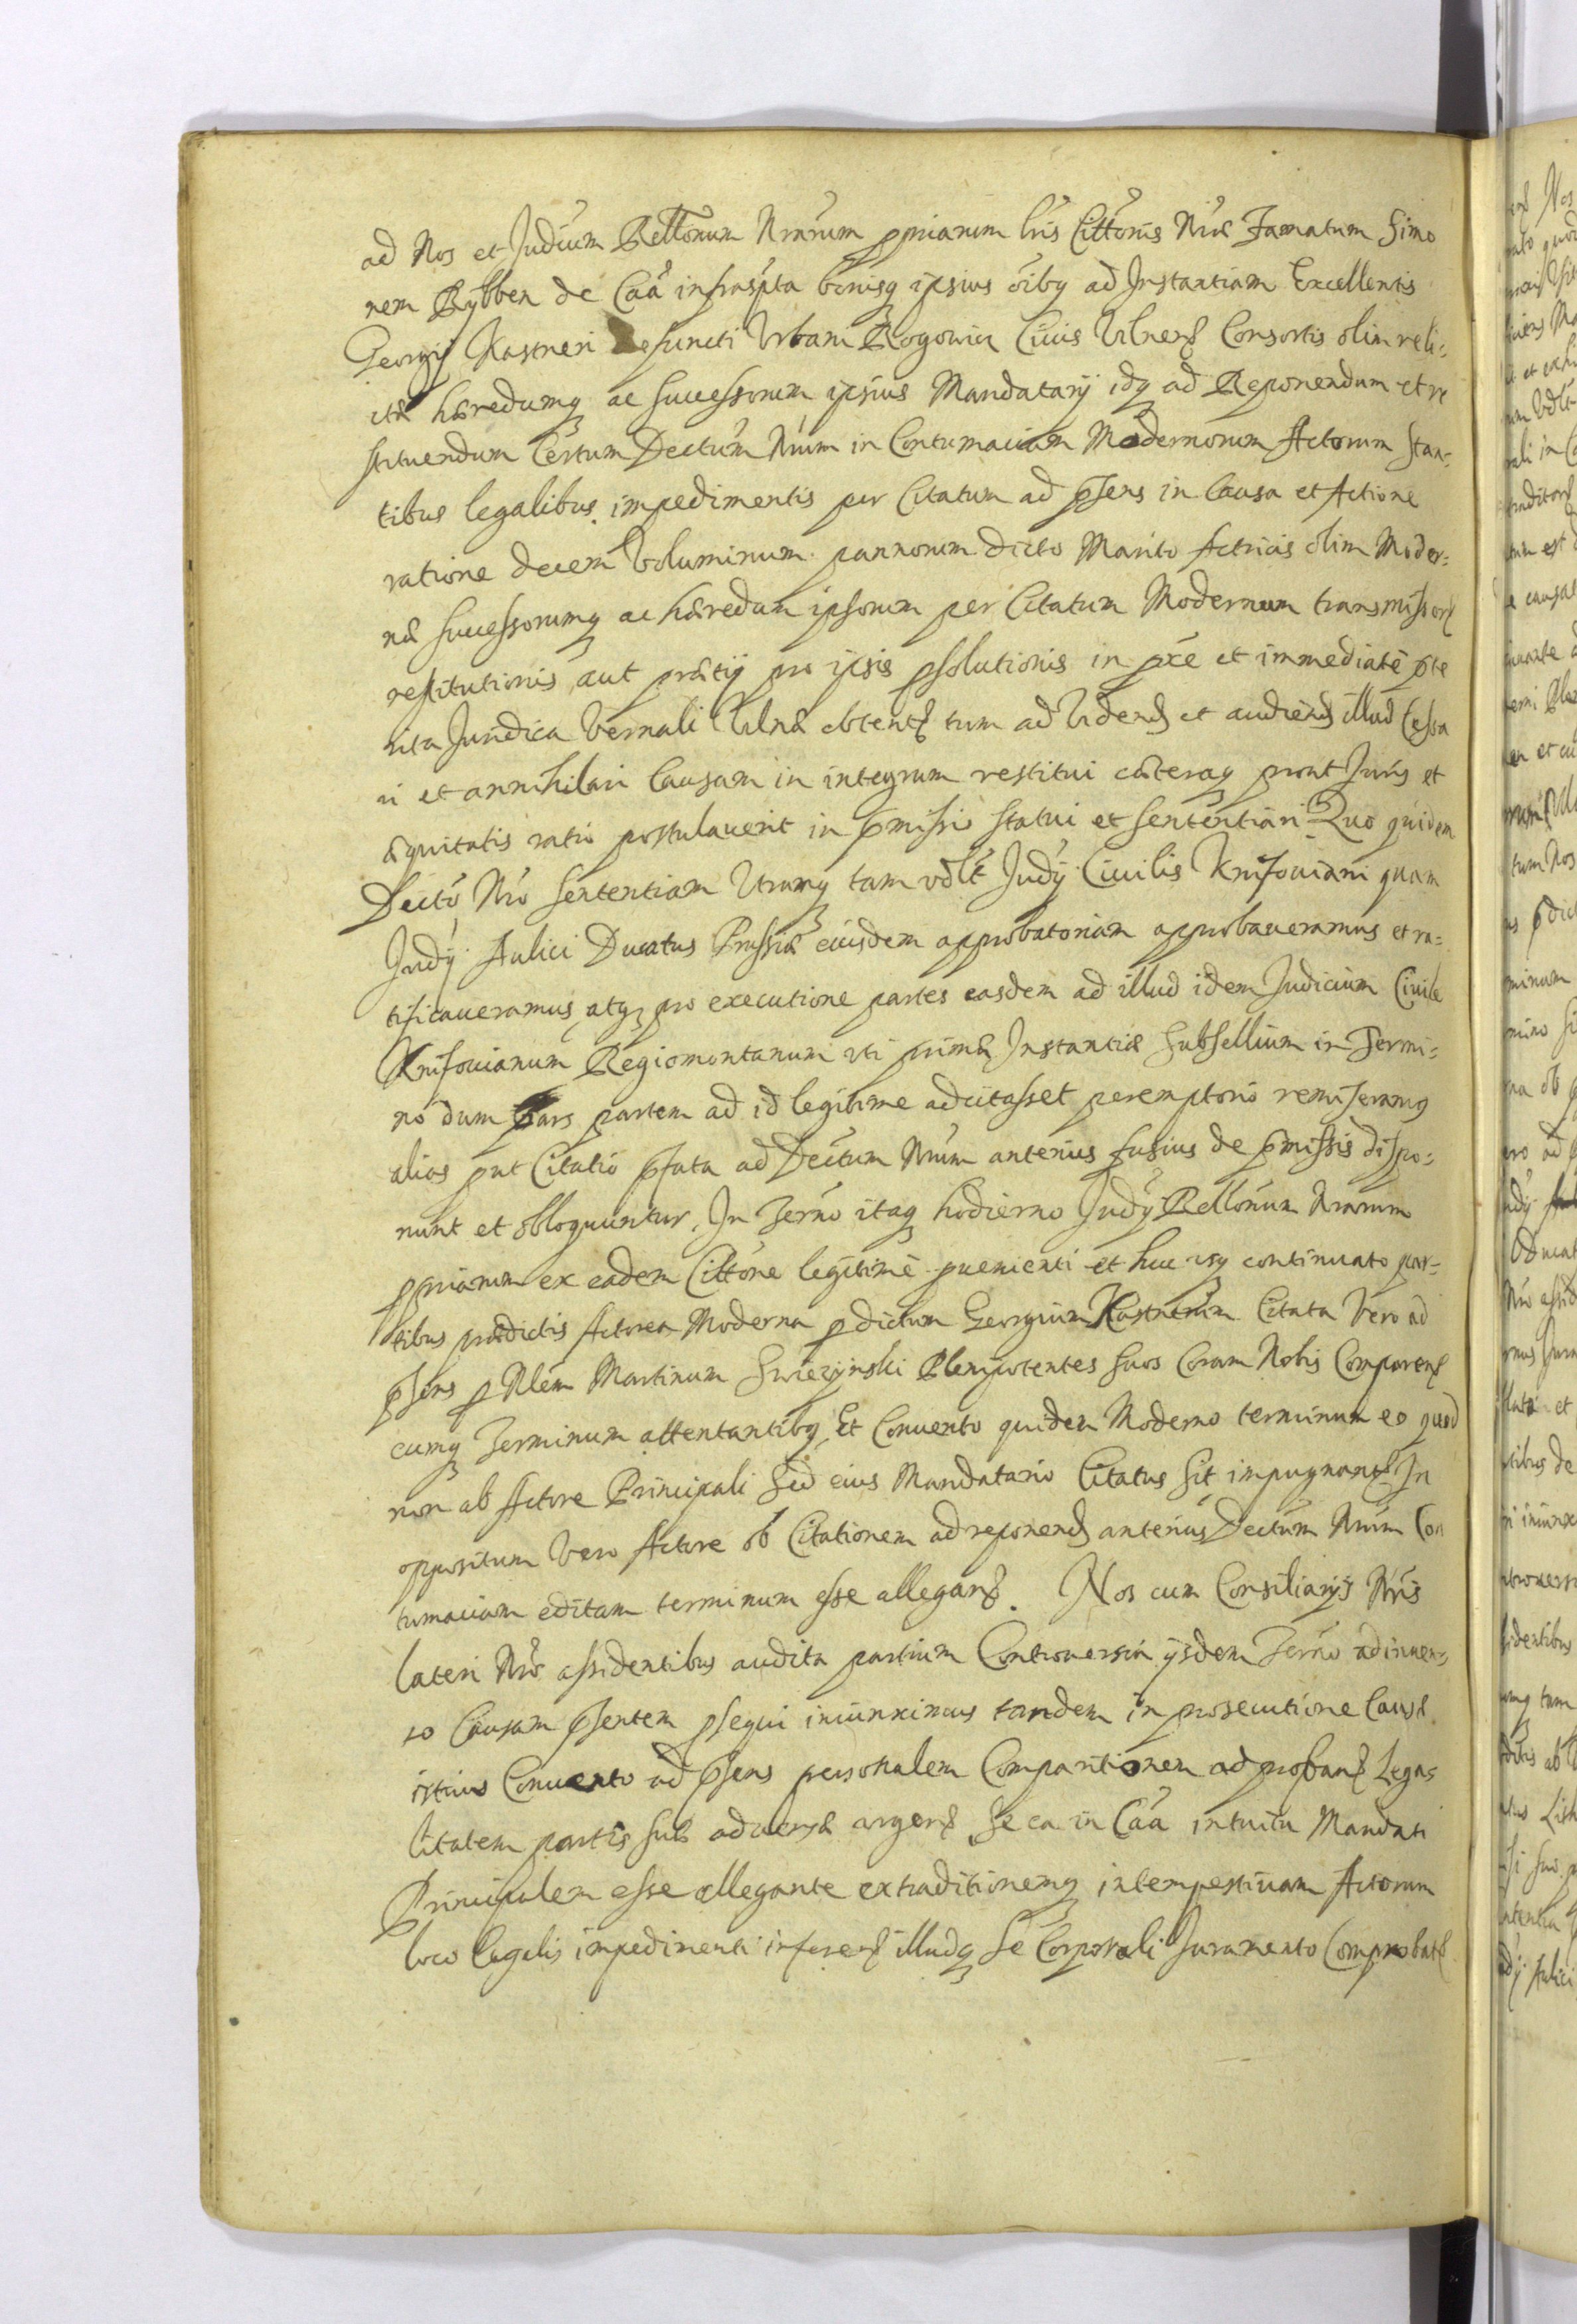 ad Nos et Judicium Rellonum Nrarum ppriarum lris Cittonis Nrae Famatum Simo
nem Rybben de Caa infrascripta bonisq ipsius oibq ad Instantiam Excellentis
Georgij Kastneri Defuncti Urbani Rogowicz Civis Vilnens Consortis olim reli=
ctae haeredumq ac Successorum ipsius Mandatarij idq ad Reponendum et re
stituendum Certum Dectum Nrum in Contumaciam Modernorum Actorum stan=
tibus legalibus impedimentis per Citatum ad psens in Causa et Actione
ratione decem Voluminum pannorum dicto Marito Actricis olim Moder=
nae Successorumq ac haeredum ipsorum per Citatum Modernum transmissor
restitutionis aut praetij pro ipsis psolutionis in pxe et immediate pte
rita Juridica Vernali Vilnae obtent tum ad Vidend et audiend illud Cassa
ri et annihilari Causam in integrum restitui caeteraq prout Juris et
aequitatis ratio postulaverit in pmissis statui et sententiari Quo quidem
Decto Nro Sententiam Utramq tam vdlt Judij Civilis Knifoviani quam
Judij Aulici Ducatus Prussiae eiusdem approbatoriam approbaveramus et ra=
tificaveramus atq pro executione partes easdem ad illud idem Judicium Civile
Knifovianum Regiomontanum uti primae Instantiae Subsellium in Termi=
no dum pars partem ad id legitime adcitasset peremptorio remiseramus
alias put Citatio psata ad Dectum Nrum anterius fusius de pmissis dispo=
nunt et obloquuntur. In Termo itaq hodierno Judij Rellonum Nrarum
ppriarum ex eadem Cittone legitime pvenienti et huc usq continuato par=
tibus praedictis Actorea Moderna p dictum Georgium Kastnerum Citata Vero ad
psens p Nlem Martinum Swiezynski Plenipotentes Suos Coram Nobis Comparen
eumq Terminum attentantibq, Et Convento quidem Moderno terminum eo quod
non ab Actore Principali Sed eius Mandatario Citatus Sit impugnant In
oppositum Vero Actore ob Citationem ad reponend anterius Dectum Nrum Con
tumaciam editam terminum esse allegan. Nos cum Consiliarijs Nris
lateri Nro assidentibus audita partium Controversia ijsdem Termo adinven=
to Causam psentem psequi iniunximus tandem in prosecutione Causae
istius Convento ad psens personalem Comparitionem ad proband Lega=
litatem partis Sub adversa argen Se ea in Caa intuitu Mandati
Principalem esse allegante extraditionemq intempestivam Actorum
loco legalis impedimenti inferen illudq Se Corporali Juramento Comprobat